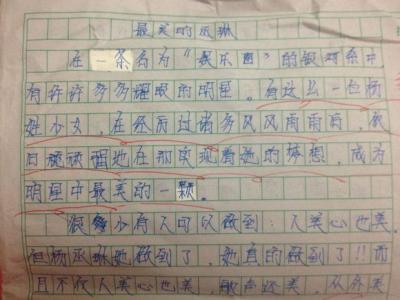 最美的丞琳
在一条名为“娱乐圈”的银河系中
有许许多多耀眼的明星。有这么一位杨
姓少女,在经历过诸多风风雨雨后,依
旧 地在 实现着她的梦想,成为
明星中最美的一颗。
很 少有人可以做到:人美心也美。
但杨丞琳她做到了,她真的做到了!!而
且不仅人美心也美,歌声还美,从外美